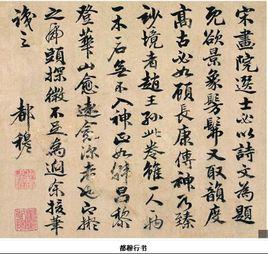 宋畫院選士必以詩文為題
既欲景象髣髴又取韻度
高古必如顧長康傳神乃臻
妙境者趙王孫此卷雖一人物
一木一石無不入神正如韓昌黎
登華山愈遠愈深者也即擬
之虎頭探微不足為過余援筆
識之
都穆
都穆行书